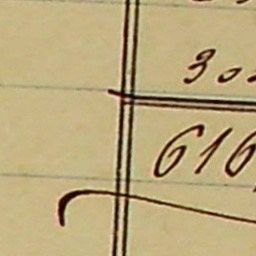 30
616